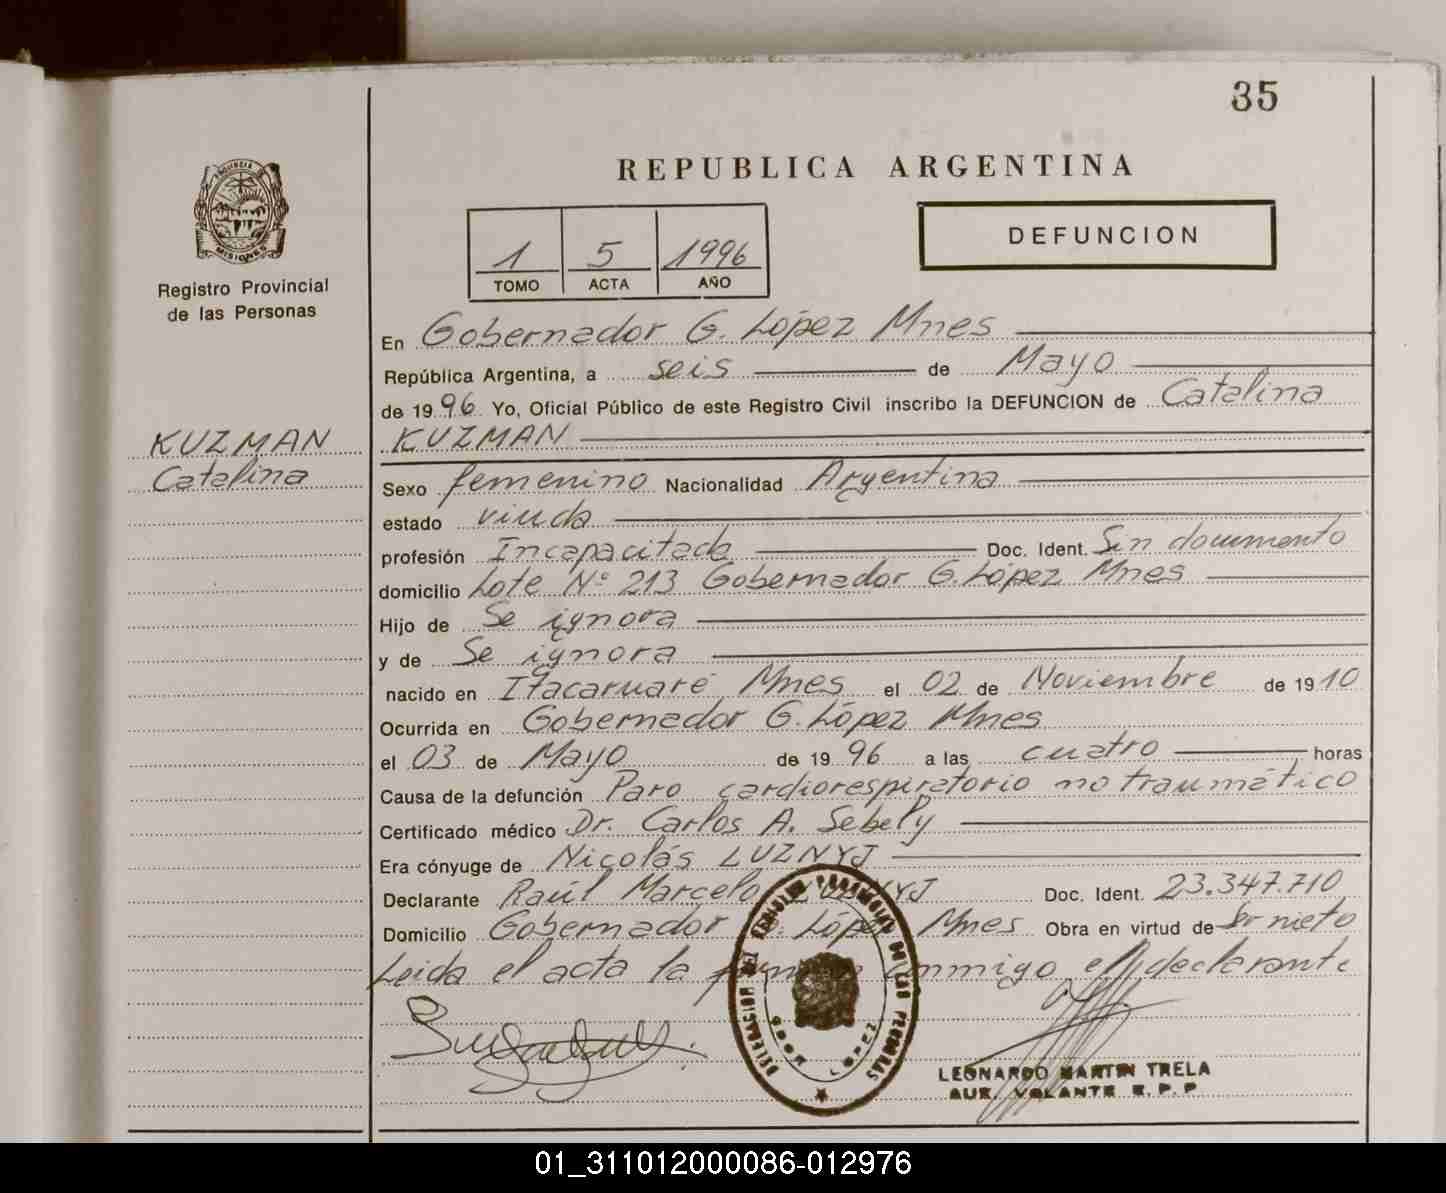 35
REPUBLICA ARGENTINA
PROVINCIA
MISIONES
Registro Provincial
de las Personas
1 5 1996
TOMO ACTA AÑO
DEFUNCION
En Gobernador G. López Mnes
República Argentina, a seis de Mayo
de 1996 Yo, Oficial Público de este Registro Civil inscribo la DEFUNCION de Catalina
KUZMAN
KUZMAN
Catalina
Sexo femenino Nacionalidad Argentina
estado viuda
profesión Incapacitada Doc. Ident. Sin documento
domicilio Lote Nº 213 Gobernador G. López Mnes
Hijo de Se ignora
y de Se ignora
nacido en Itacaruaré Mnes el 02 de Noviembre de 1910
Ocurrida en Gobernador G. López Mnes
el 03 de Mayo de 1996 a las cuatro horas
Causa de la defunción Paro cardiorespiratorio no traumático
Certificado médico Dr. Carlos A. Sebely
Era cónyuge de Nicolás LUZNYJ
Declarante Raúl Marcelo Doc. Ident. 23.347.710
Domicilio Gobernador G. López Mnes Obra en virtud de Ser nieto
Leida el acta la conmigo el declarante
DELEGACION DEL REGISTRO PROVINCIAL DE LAS PERSONAS
GDOR LOPEZ
LEONARDO MARTIN TRELA
AUX. VOLANTE R.P.P
01_311012000086-012976